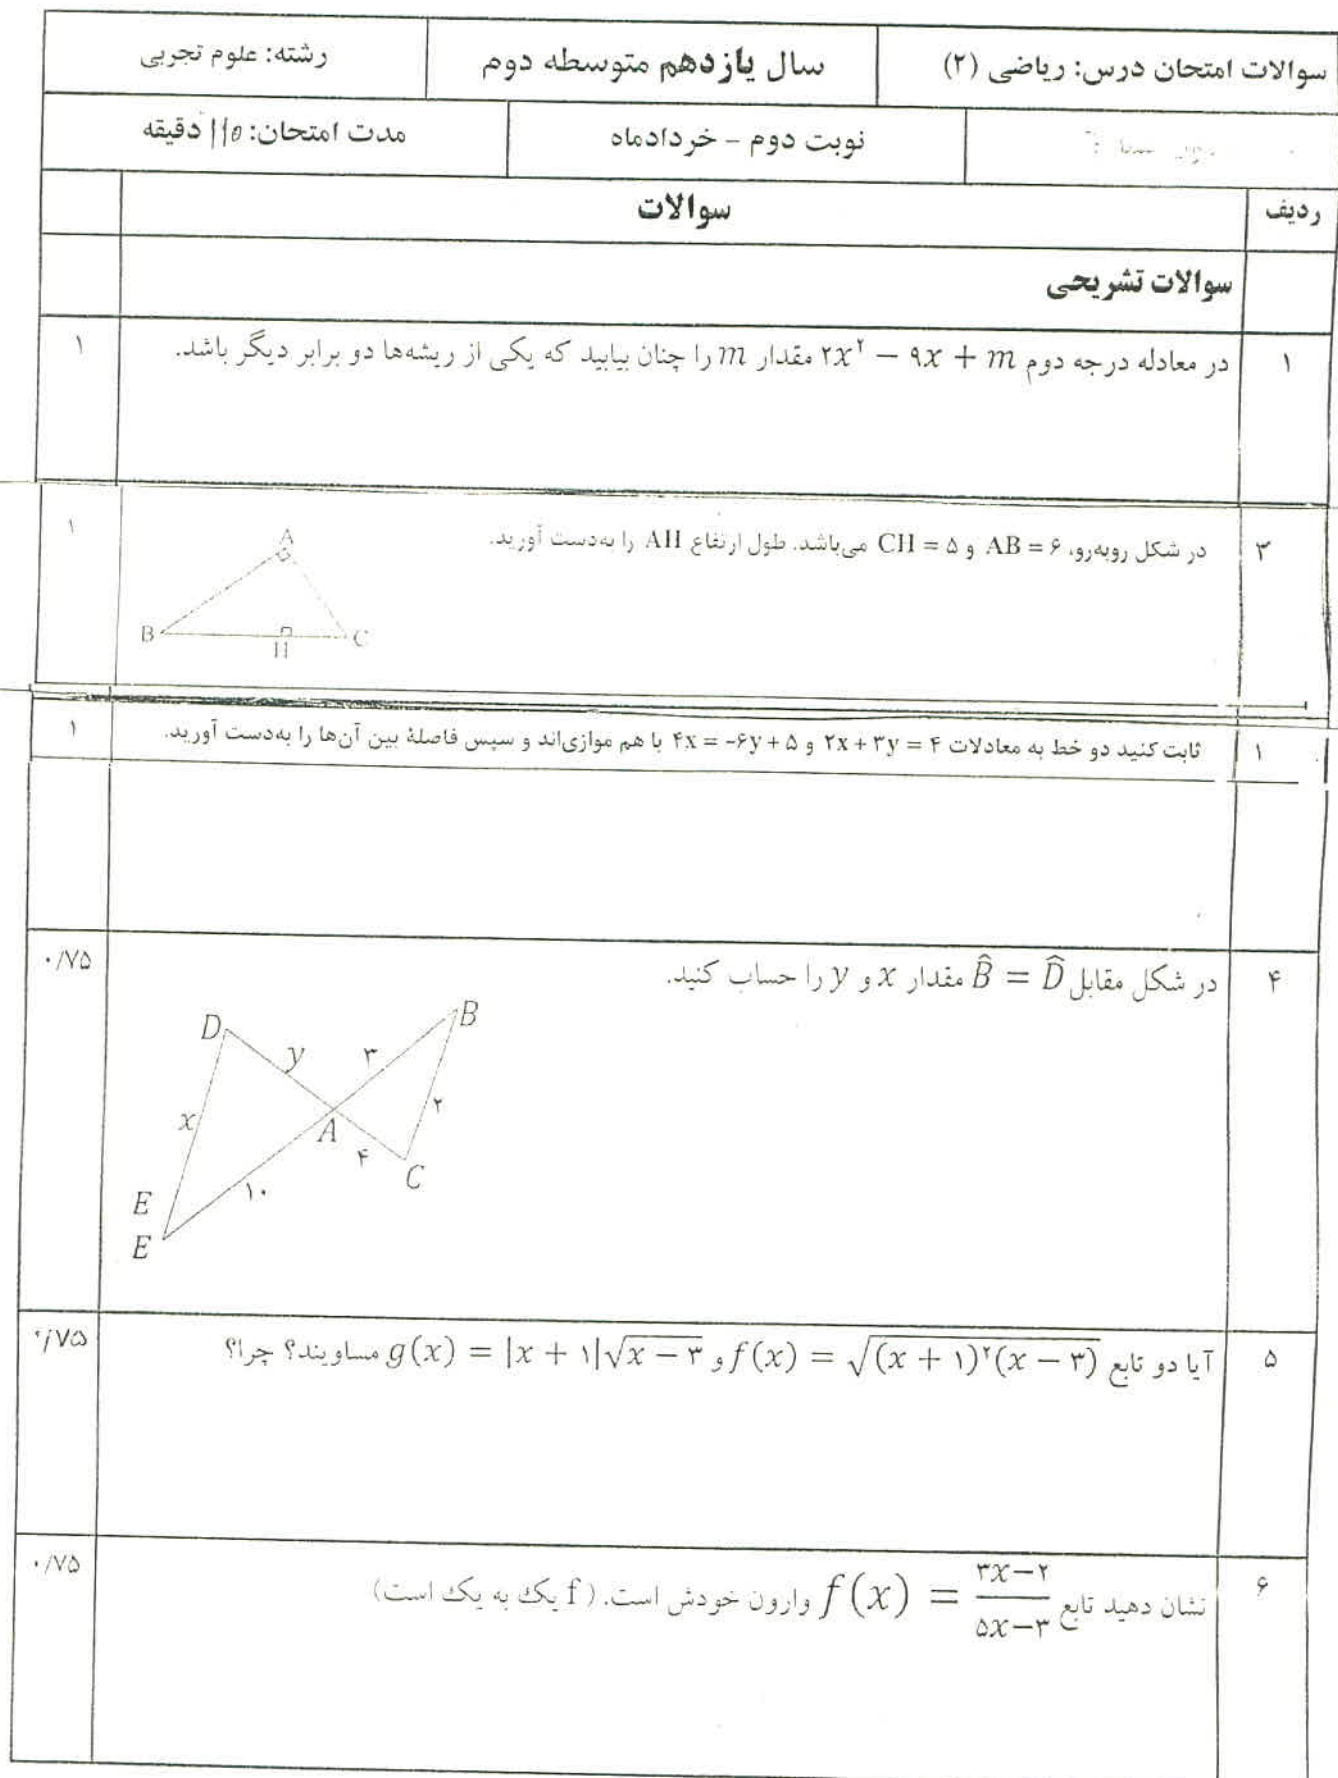 سوالات امتحان درس: ریاضی (۲)
سال یازدهم متوسطه دوم
رشته: علوم تجربی
نوبت دوم - خردادماه
مدت امتحان: دقیقه
ردیف
سوالات
سوالات تشریحی
۱
در معادله درجه دوم ۲x² − ۹x + m مقدار m را چنان بیابید که یکی از ریشه‌ها دو برابر دیگر باشد.
۱
۳
در شکل روبه‌رو، AB = ۶ و CH = ۵ می‌باشد. طول ارتفاع AH را به‌دست آورید.
۱
A
B
H
C
۱
ثابت کنید دو خط به معادلات ۲x + ۳y = ۴ و ۴x = -۶y + ۵ با هم موازی‌اند و سپس فاصلهٔ بین آن‌ها را به‌دست آورید.
۱
۴
در شکل مقابل B̂ = D̂ مقدار x و y را حساب کنید.
۰/۷۵
D
B
y
۳
x
A
۲
۴
C
۱۰
E
E
۵
آیا دو تابع f(x) = √((x + ۱)²(x − ۳)) و g(x) = |x + ۱|√(x − ۳) مساویند؟ چرا؟
۰/۷۵
۶
نشان دهید تابع f(x) = (۳x−۲)/(۵x−۳) وارون خودش است. (f یک به یک است)
۰/۷۵